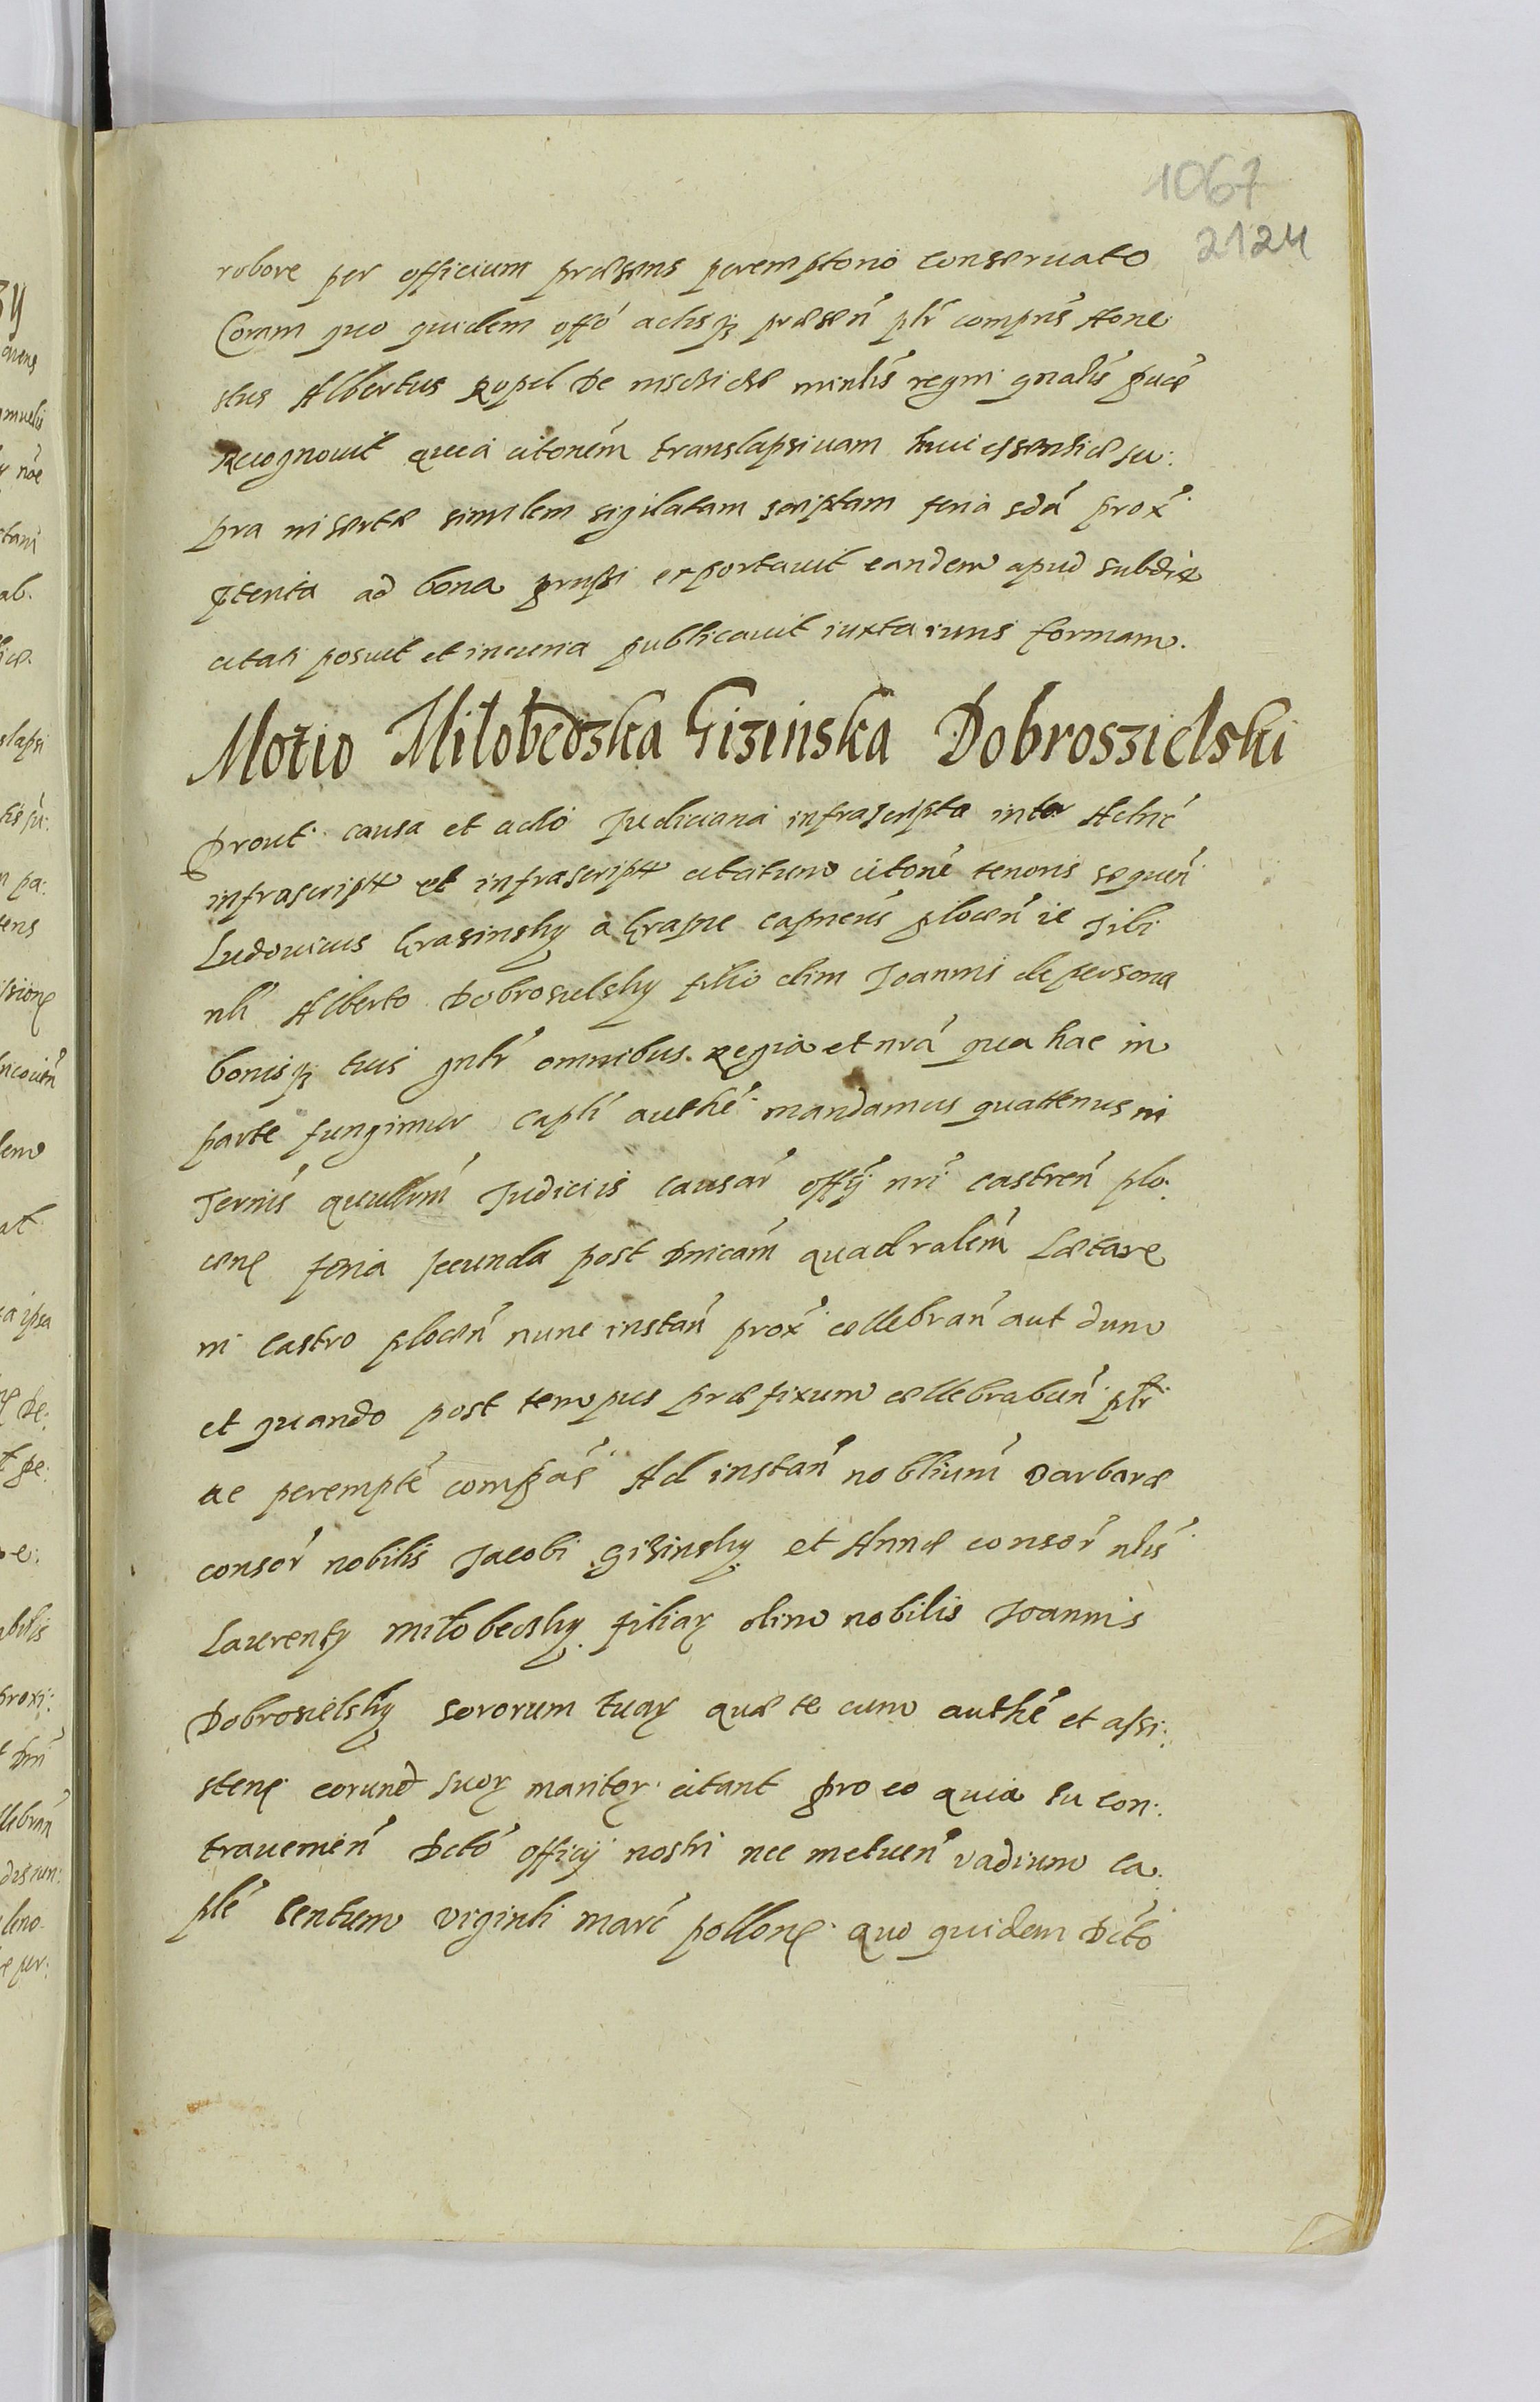 1067
2124
robore per officium præsens peremptorio conservato
Coram quo quidem offo actisq præsen plr compns Hone
stus Albertus Popel de mschicze minlis regni gnalis
recognovit quia citonem translapsivam huic essentiæ su:
pra insertæ similem sigilatam scriptam feria sda prox
pterita ad bona exportavit eandem apud subdit
citati posuit et in curia publicavit iuxta iuris formam.
Motio Miłobedzka Gizinska Dobroszielski
Prout causa et actio Judiciaria infrascripta inter Actric
infrascript et infrascript citatum citone tenoris sequen
Ludovicus Krasinsky a Krasne capneus plocen ie Tibi
nli Alberto Dobrosielsky filio olim Joannis de persona
bonisq tuis gnlr omnibus. Regia et nra qua hac in
parte fungimur capli authe mandamus quattenus in
Termis querellrum Judiciis causar offij nri castren plo:
cen feria secunda post Dnicam quadralem Lætare
in castro plocen nunc instan prox cællebran aut dum
et quando post tempus præfixum cællebrabun plr
ac perempte compas Ad instan noblium Barbaræ
consor nobilis Jacobi Gisinsky et Annæ consor nlis
Laurenty Miłobedsky filiar olim nobilis Joannis
Dobrosielsky sororum tuar quæ te cum authe et assi:
sten eorund suor maritor citant pro eo quia tu con:
travenien Dcto officij nostri nec metuen vadium ca:
ple Centum viginti marc pollon quo quidem Dcto